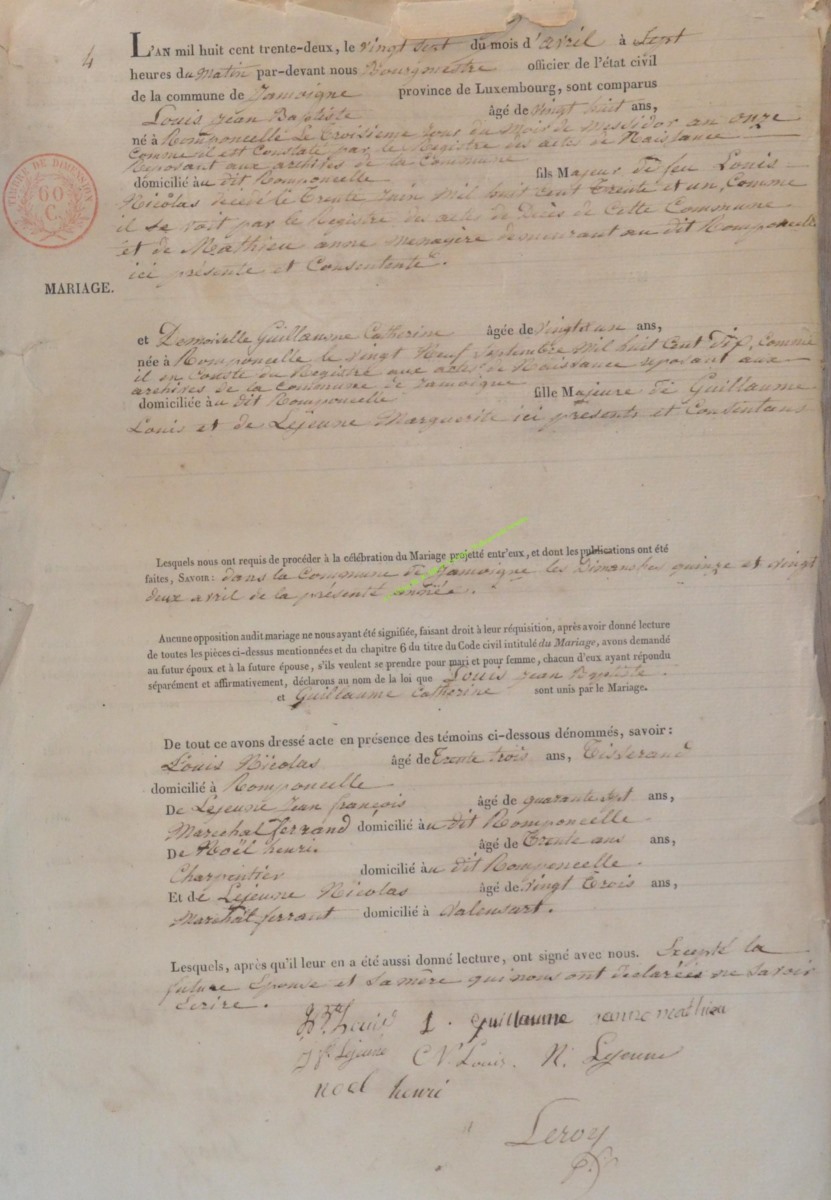 4
L'AN mil huit cent trente-deux, le vingt sept du mois d'avril à Sept
heures du Matin par-devant nous Bourgmestre officier de l'état civil
de la commune de Jamoigne province de Luxembourg, sont comparus
Louis Jean Baptiste âgé de vingt huit ans,
né à Romponcelle Le Troisieme jour du Mois de Messidor an onze
Comme il est Constaté par le Registre des actes de Naissance
Reposant aux archives de la Commune
domicilié au dit Romponcelle fils Majeur de feu Louis
Nicolas décédé le Trente Juin Mil huit cent Trente et un, Comme
il se voit par le Registre des actes de Décès de Cette Commune
et de Mathieu anne menagère demeurant au dit Romponcelle
ici présente et Consentente.
TIMBRE DE DIMENSION
60
C.
MARIAGE.
et Demoiselle Guillaume Catherine âgée de vingt un ans,
née à Romponcelle le vingt Neuf Septembre Mil huit Cent dix, Comme
il en Conste du Registre aux actes de Naissance reposant aux
archives de la Commune de Jamoigne
domiciliée au dit Romponcelle fille Majeure de Guillaume
Louis et de Lejeune Marguerite ici presents et Consentans
Lesquels nous ont requis de procéder à la célébration du Mariage projetté entr'eux, et dont les publications ont été
faites, Savoir: dans la Commune de Jamoigne les Dimanches quinze et vingt
deux avril de la présente année.
Aucune opposition audit mariage ne nous ayant été signifiée, faisant droit à leur réquisition, après avoir donné lecture
de toutes les pièces ci-dessus mentionnées et du chapitre 6 du titre du Code civil intitulé du Mariage, avons demandé
au futur époux et à la future épouse, s'ils veulent se prendre pour mari et pour femme, chacun d'eux ayant répondu
séparément et affirmativement, déclarons au nom de la loi que Louis Jean Baptiste
et Guillaume Catherine sont unis par le Mariage.
De tout ce avons dressé acte en présence des témoins ci-dessous dénommés, savoir:
Louis Nicolas âgé de Trente trois ans, Tisserand
domicilié à Romponcelle
De Lejeune Jean françois âgé de quarante sept ans,
Marechal ferrand domicilié au dit Romponcelle
De Noël henri âgé de Trente ans ans,
Charpentier domicilié au dit Romponcelle.
Et de Lejeune Nicolas âgé de vingt Trois ans,
Marechal ferrant domicilié à Valensart.
Lesquels, après qu'il leur en a été aussi donné lecture, ont signé avec nous. Excepté la
future Epouse et sa mère qui nous ont declarées ne savoir
écrire.
Louis L. guillaume anne mathieu
Lejeune C N Louis. N. Lejeune
noel henri
Leroy